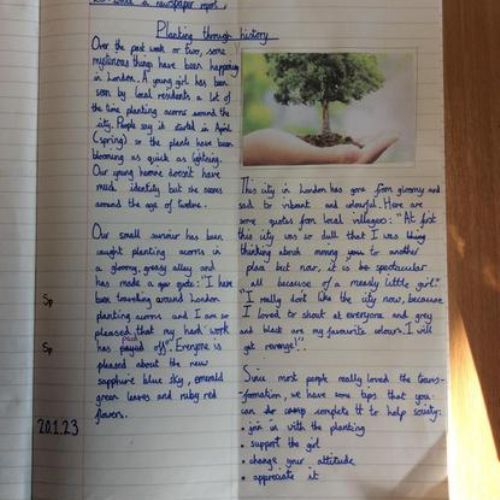 write a newspaper report.
Planting through history
Over the past week or two, some
mysterious things have been happening
in London. A young girl has been
seen by local residents a lot of
the time planting acorns around the
city. People say it started in April
(spring) so the plants have been
blooming as quick as lightning.
Our young heroine doesn't have
much identity but she seems
around the age of twelve.
Our small saviour has been
caught planting acorns in
a gloomy, greasy alley and
has made a quote: "I have
been travelling around London
planting acorns and I am so
pleased that my hard work
has paid off". Everyone is
pleased about the new
sapphire blue sky, emerald
green leaves and ruby red
flowers.
Sp
Sp
20.1.23
This city in London has gone from gloomy and
sad to vibrant and colourful. Here are
some quotes from local villagers: "At first
this city was so dull that I was
thinking about moving to another
place but now, it is spectacular
all because of a measly little girl."
"I really don't like the city now, because
I loved to shout at everyone and grey
and black are my favourite colours. I will
get revenge!".
Since most people really loved the trans-
formation, we have some tips that you
can complete to help society:
• join in with the planting
• support the girl
• change your attitude
• appreciate it